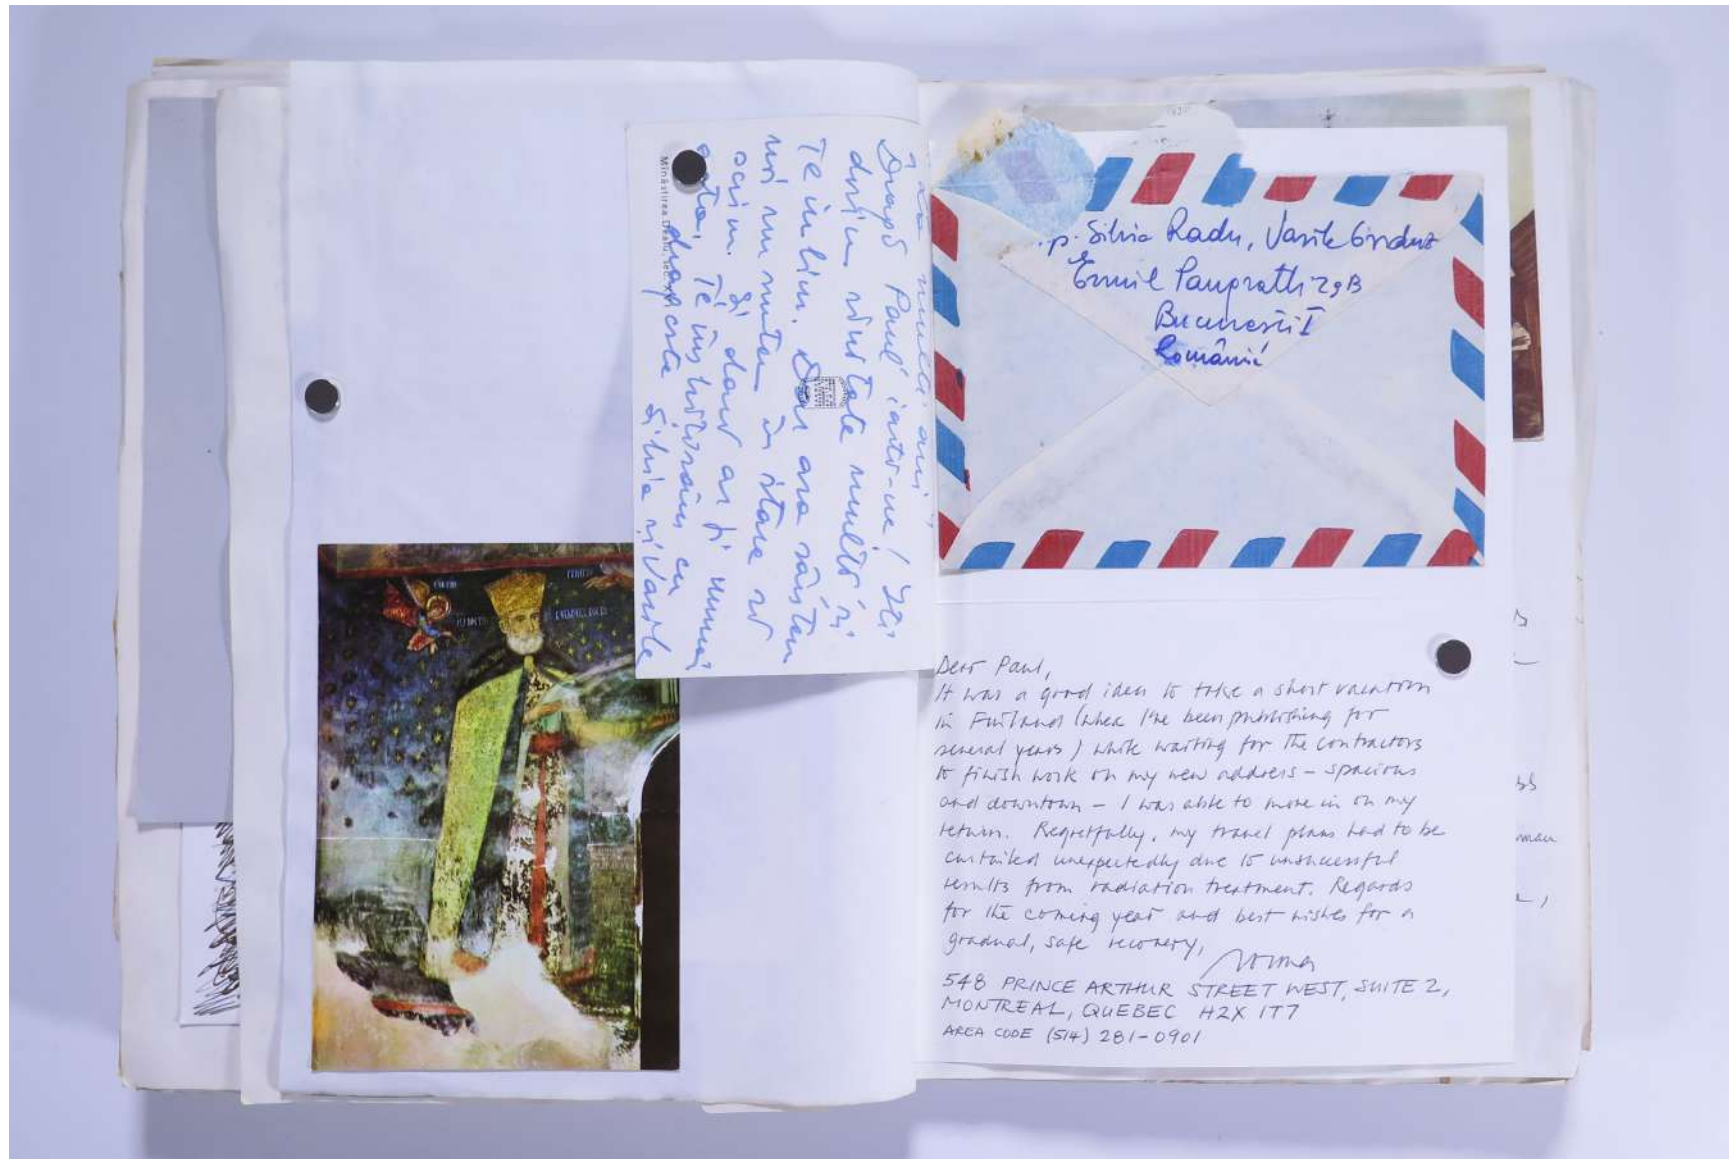 La mulți ani,
Dragă Paul iartă-ne! Îți
dorim sănătate multă și
te iubim. Dar așa sântem
noi nu suntem în stare să
scriem. Și doar ar fi numai
asta. Te îmbrățișăm cu
dragoste Silvia și Vasile
Mînăstirea Dealu, sec. XVI
Silvia Radu, Vasile Gorduz
Emil Pangratti 29B
București I
România
Dear Paul,
It was a good idea to take a short vacation
in Finland (where I've been publishing for
several years) while waiting for the contractors
to finish work on my new address – spacious
and downtown – I was able to move in on my
return. Regretfully, my travel plans had to be
curtailed unexpectedly due to unsuccessful
results from radiation treatment. Regards
for the coming year and best wishes for a
gradual, safe recovery,
548 PRINCE ARTHUR STREET WEST, SUITE 2,
MONTREAL, QUEBEC H2X 1T7
AREA CODE (514) 281-0901